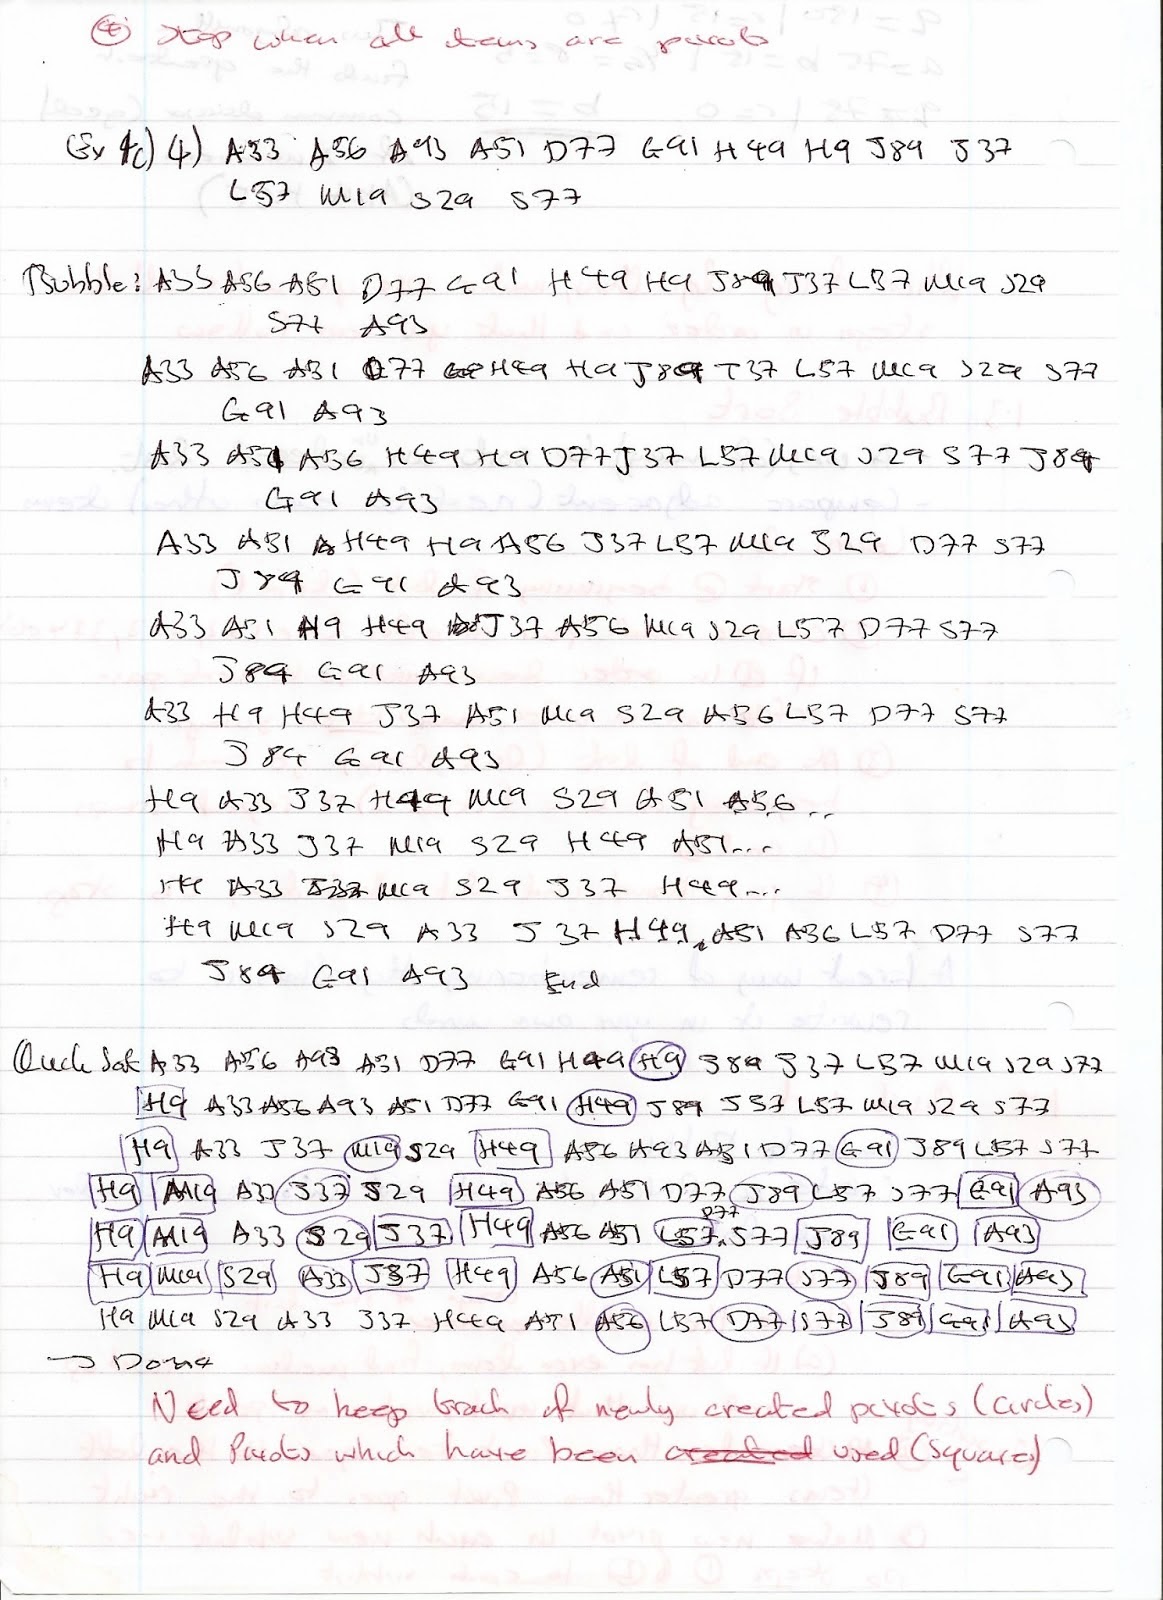 ④ Stop when all items are pivots
Ex 1c) 4) A33 A56 A93 A51 D77 G91 H49 H9 J89 J37
L57 M19 S29 S77
Bubble: A33 A56 A51 D77 G91 H49 H9 J89 J37 L57 M19 S29
S77 A93
A33 A56 A51 D77 H49 H9 J89 J37 L57 M19 S29 S77
G91 A93
A33 A51 A56 H49 H9 D77 J37 L57 M19 S29 S77 J89
G91 A93
A33 A51 H49 H9 A56 J37 L57 M19 S29 D77 S77
J89 G91 A93
A33 A51 H9 H49 J37 A56 M19 S29 L57 D77 S77
J89 G91 A93
A33 H9 H49 J37 A51 M19 S29 A56 L57 D77 S77
J89 G91 A93
H9 A33 J37 H49 M19 S29 A51 A56..
H9 A33 J37 M19 S29 H49 A51...
H9 A33 M19 S29 J37 H49...
H9 M19 S29 A33 J37 H49, A51 A56 L57 D77 S77
J89 G91 A93 End
Quick Sort A33 A56 A93 A51 D77 G91 H49 H9 J89 J37 L57 M19 S29 S77
H9 A33 A56 A93 A51 D77 G91 H49 J89 J37 L57 M19 S29 S77
H9 A33 J37 M19 S29 H49 A56 A93 A51 D77 G91 J89 L57 S77
H9 M19 A33 J37 S29 H49 A56 A51 D77 J89 L57 S77 G91 A93
H9 M19 A33 S29 J37 H49 A56 A51 L57 D77 S77 J89 G91 A93
H9 M19 S29 A33 J37 H49 A56 A51 L57 D77 S77 J89 G91 A93
H9 M19 S29 A33 J37 H49 A51 A56 L57 D77 S77 J89 G91 A93
→ Done
Need to keep track of newly created pivots (circles)
and Pivots which have been created used (square)